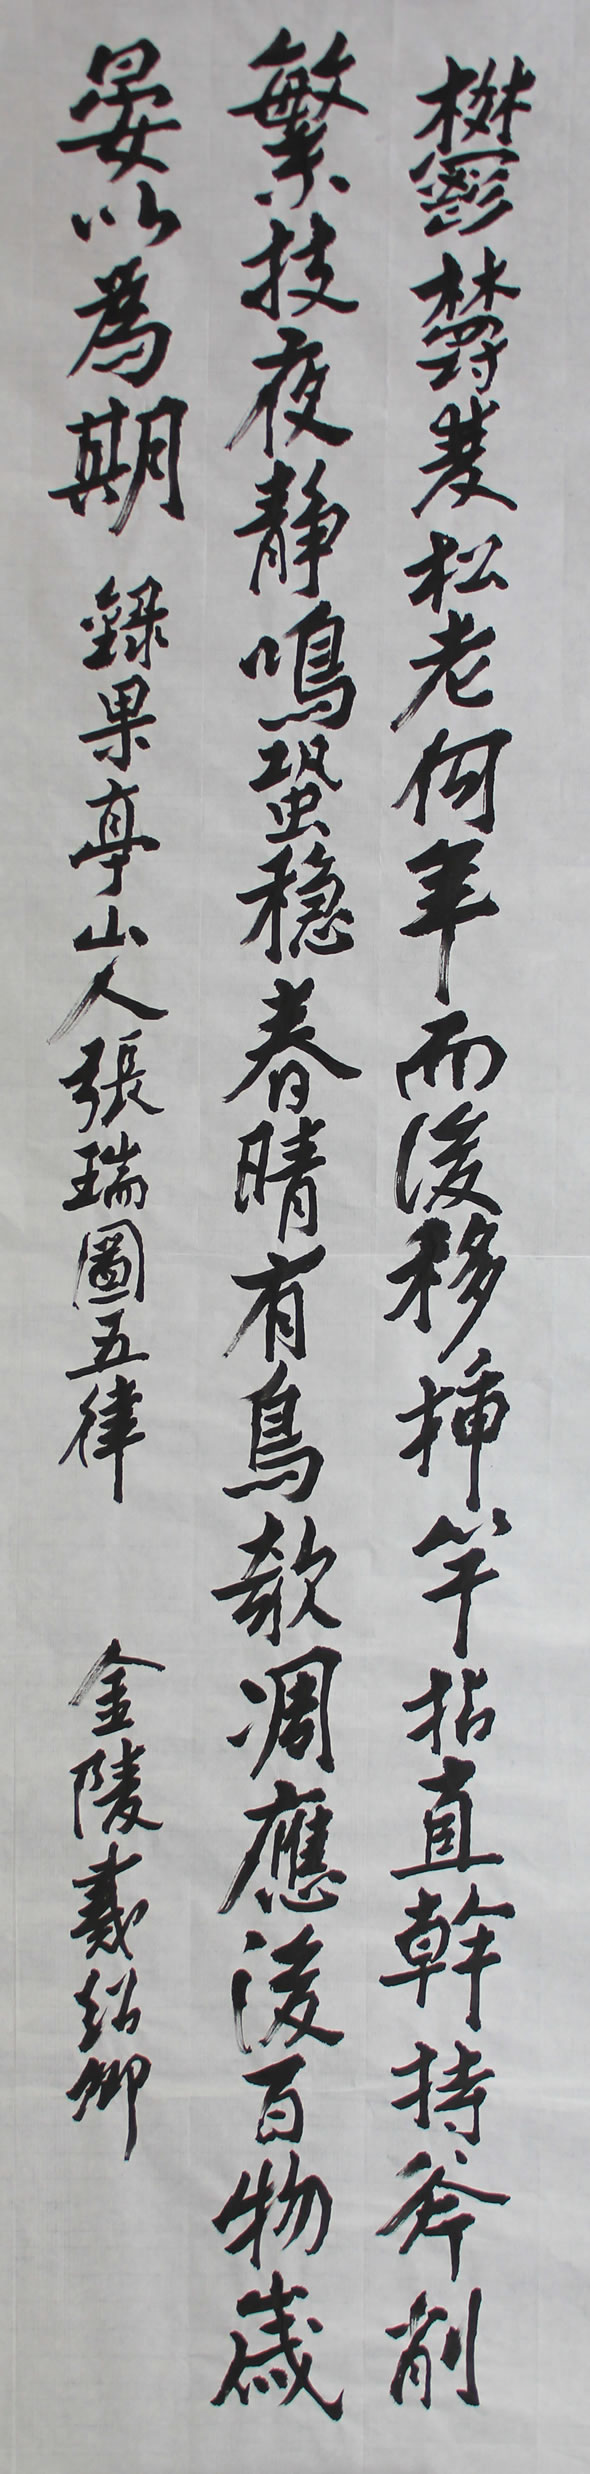 鬱鬱虬松老何年而後移插竿拈直幹持斧削
繁技夜静鳴蛩穩春晴有鳥欹凋應後百物歲
晏以為期 錄果亭山人張瑞圖五律 金陵戴紹卿